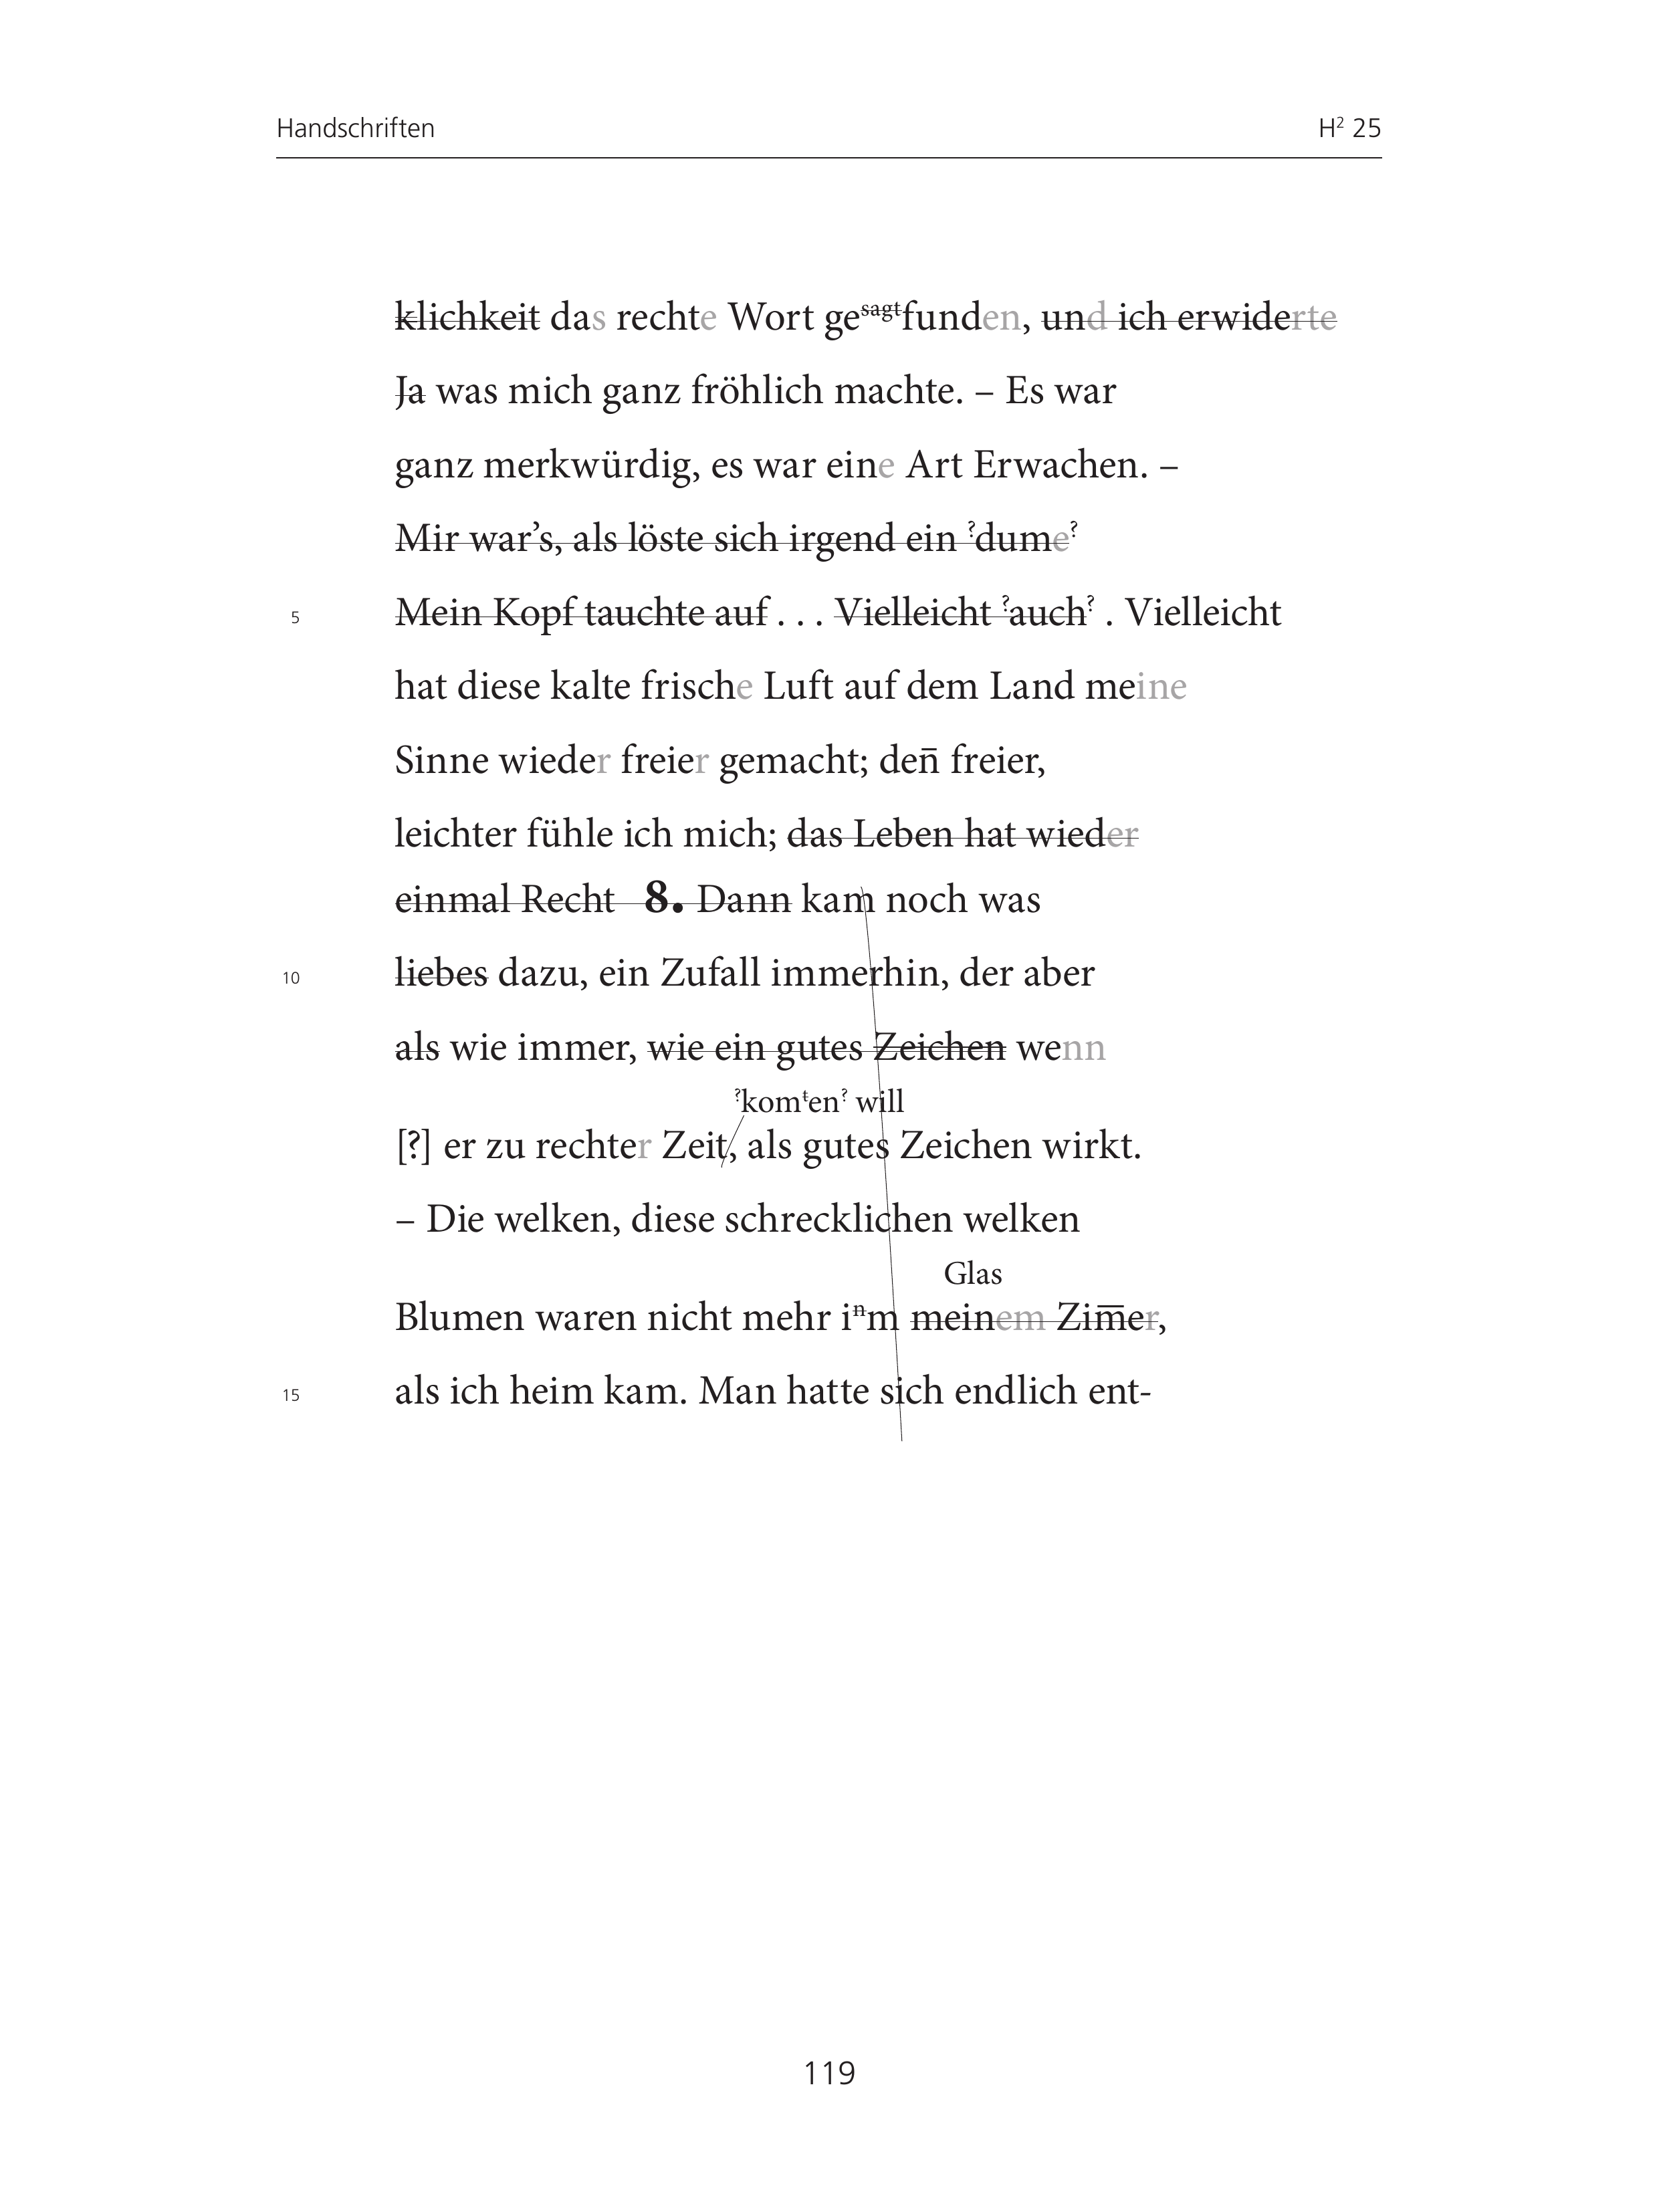 Handschriften H² 25
klichkeit das rechte Wort gesagtfunden, und ich erwiderte
Ja was mich ganz fröhlich machte. – Es war
ganz merkwürdig, es war eine Art Erwachen. –
Mir war’s, als löste sich irgend ein ?dume?
5 Mein Kopf tauchte auf . . . Vielleicht ?auch? . Vielleicht
hat diese kalte frische Luft auf dem Land meine
Sinne wieder freier gemacht; den̅ freier,
leichter fühle ich mich; das Leben hat wieder
einmal Recht 8. Dann kam noch was
10 liebes dazu, ein Zufall immerhin, der aber
als wie immer, wie ein gutes Zeichen wenn
?komten? will
[?] er zu rechter Zeit, als gutes Zeichen wirkt.
– Die welken, diese schrecklichen welken
Glas
Blumen waren nicht mehr inm meinem Zim̅er,
15 als ich heim kam. Man hatte sich endlich ent-
119